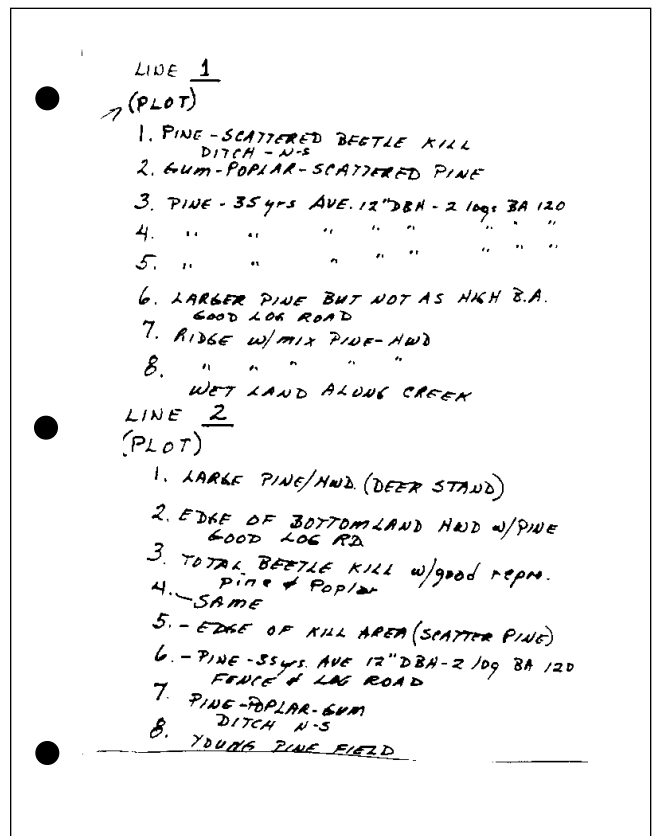 LINE 1
(PLOT)
1. PINE - SCATTERED BEETLE KILL
DITCH - N-S
2. GUM-POPLAR-SCATTERED PINE
3. PINE - 35 yrs AVE. 12" DBH - 2 logs BA 120
4. " " " " " " " "
5. " " " " " " " "
6. LARGER PINE BUT NOT AS HIGH B.A.
GOOD LOG ROAD
7. RIDGE w/ MIX PINE-HWD
8. " " " " "
WET LAND ALONG CREEK
LINE 2
(PLOT)
1. LARGE PINE/HWD. (DEER STAND)
2. EDGE OF BOTTOMLAND HWD w/PINE
GOOD LOG RD
3. TOTAL BEETLE KILL w/good repro.
pine & Poplar
4. - SAME
5. - EDGE OF KILL AREA (SCATTER PINE)
6. - PINE - 35 yrs. AVE 12" DBH - 2 log BA 120
FENCE & LOG ROAD
7. PINE-POPLAR-GUM
DITCH N-S
8. YOUNG PINE FIELD